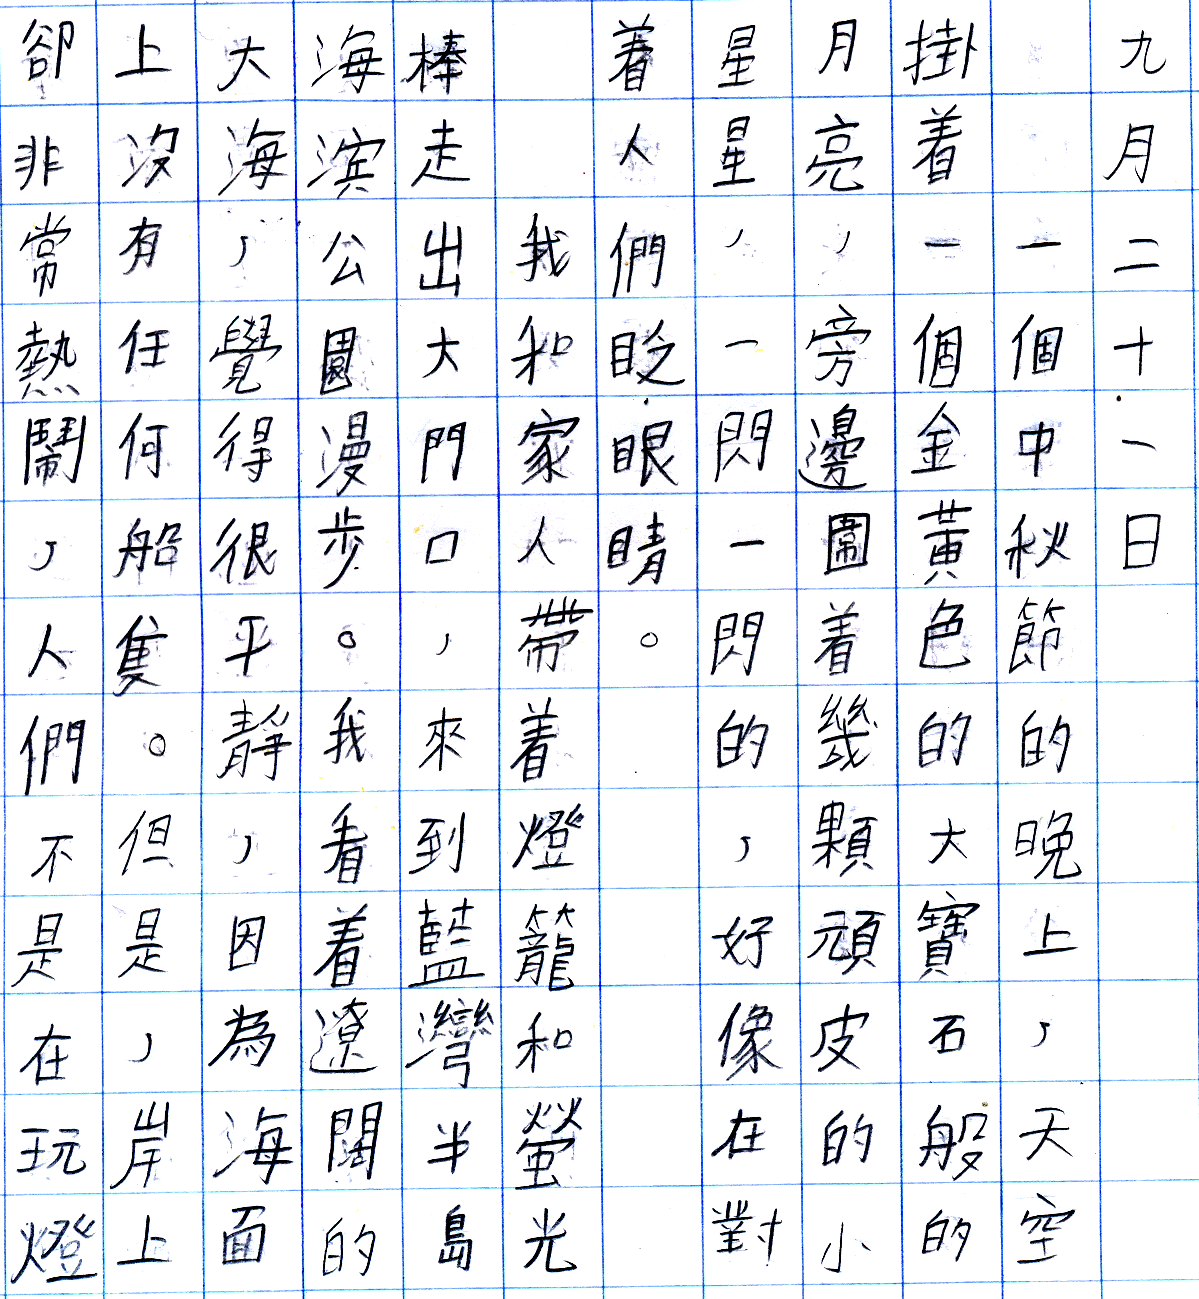 九月二十一日
一個中秋節的晚上，天空
掛着一個金黃色的大寶石般的
月亮，旁邊圍着幾顆頑皮的小
星星，一閃一閃的，好像在對
着人們眨眼睛。
我和家人帶着燈籠和螢光
棒走出大門口，來到藍灣半島
海濱公園漫步。我看着遼闊的
大海，覺得很平靜，因為海面
上沒有任何船隻。但是，岸上
卻非常熱鬧，人們不是在玩燈